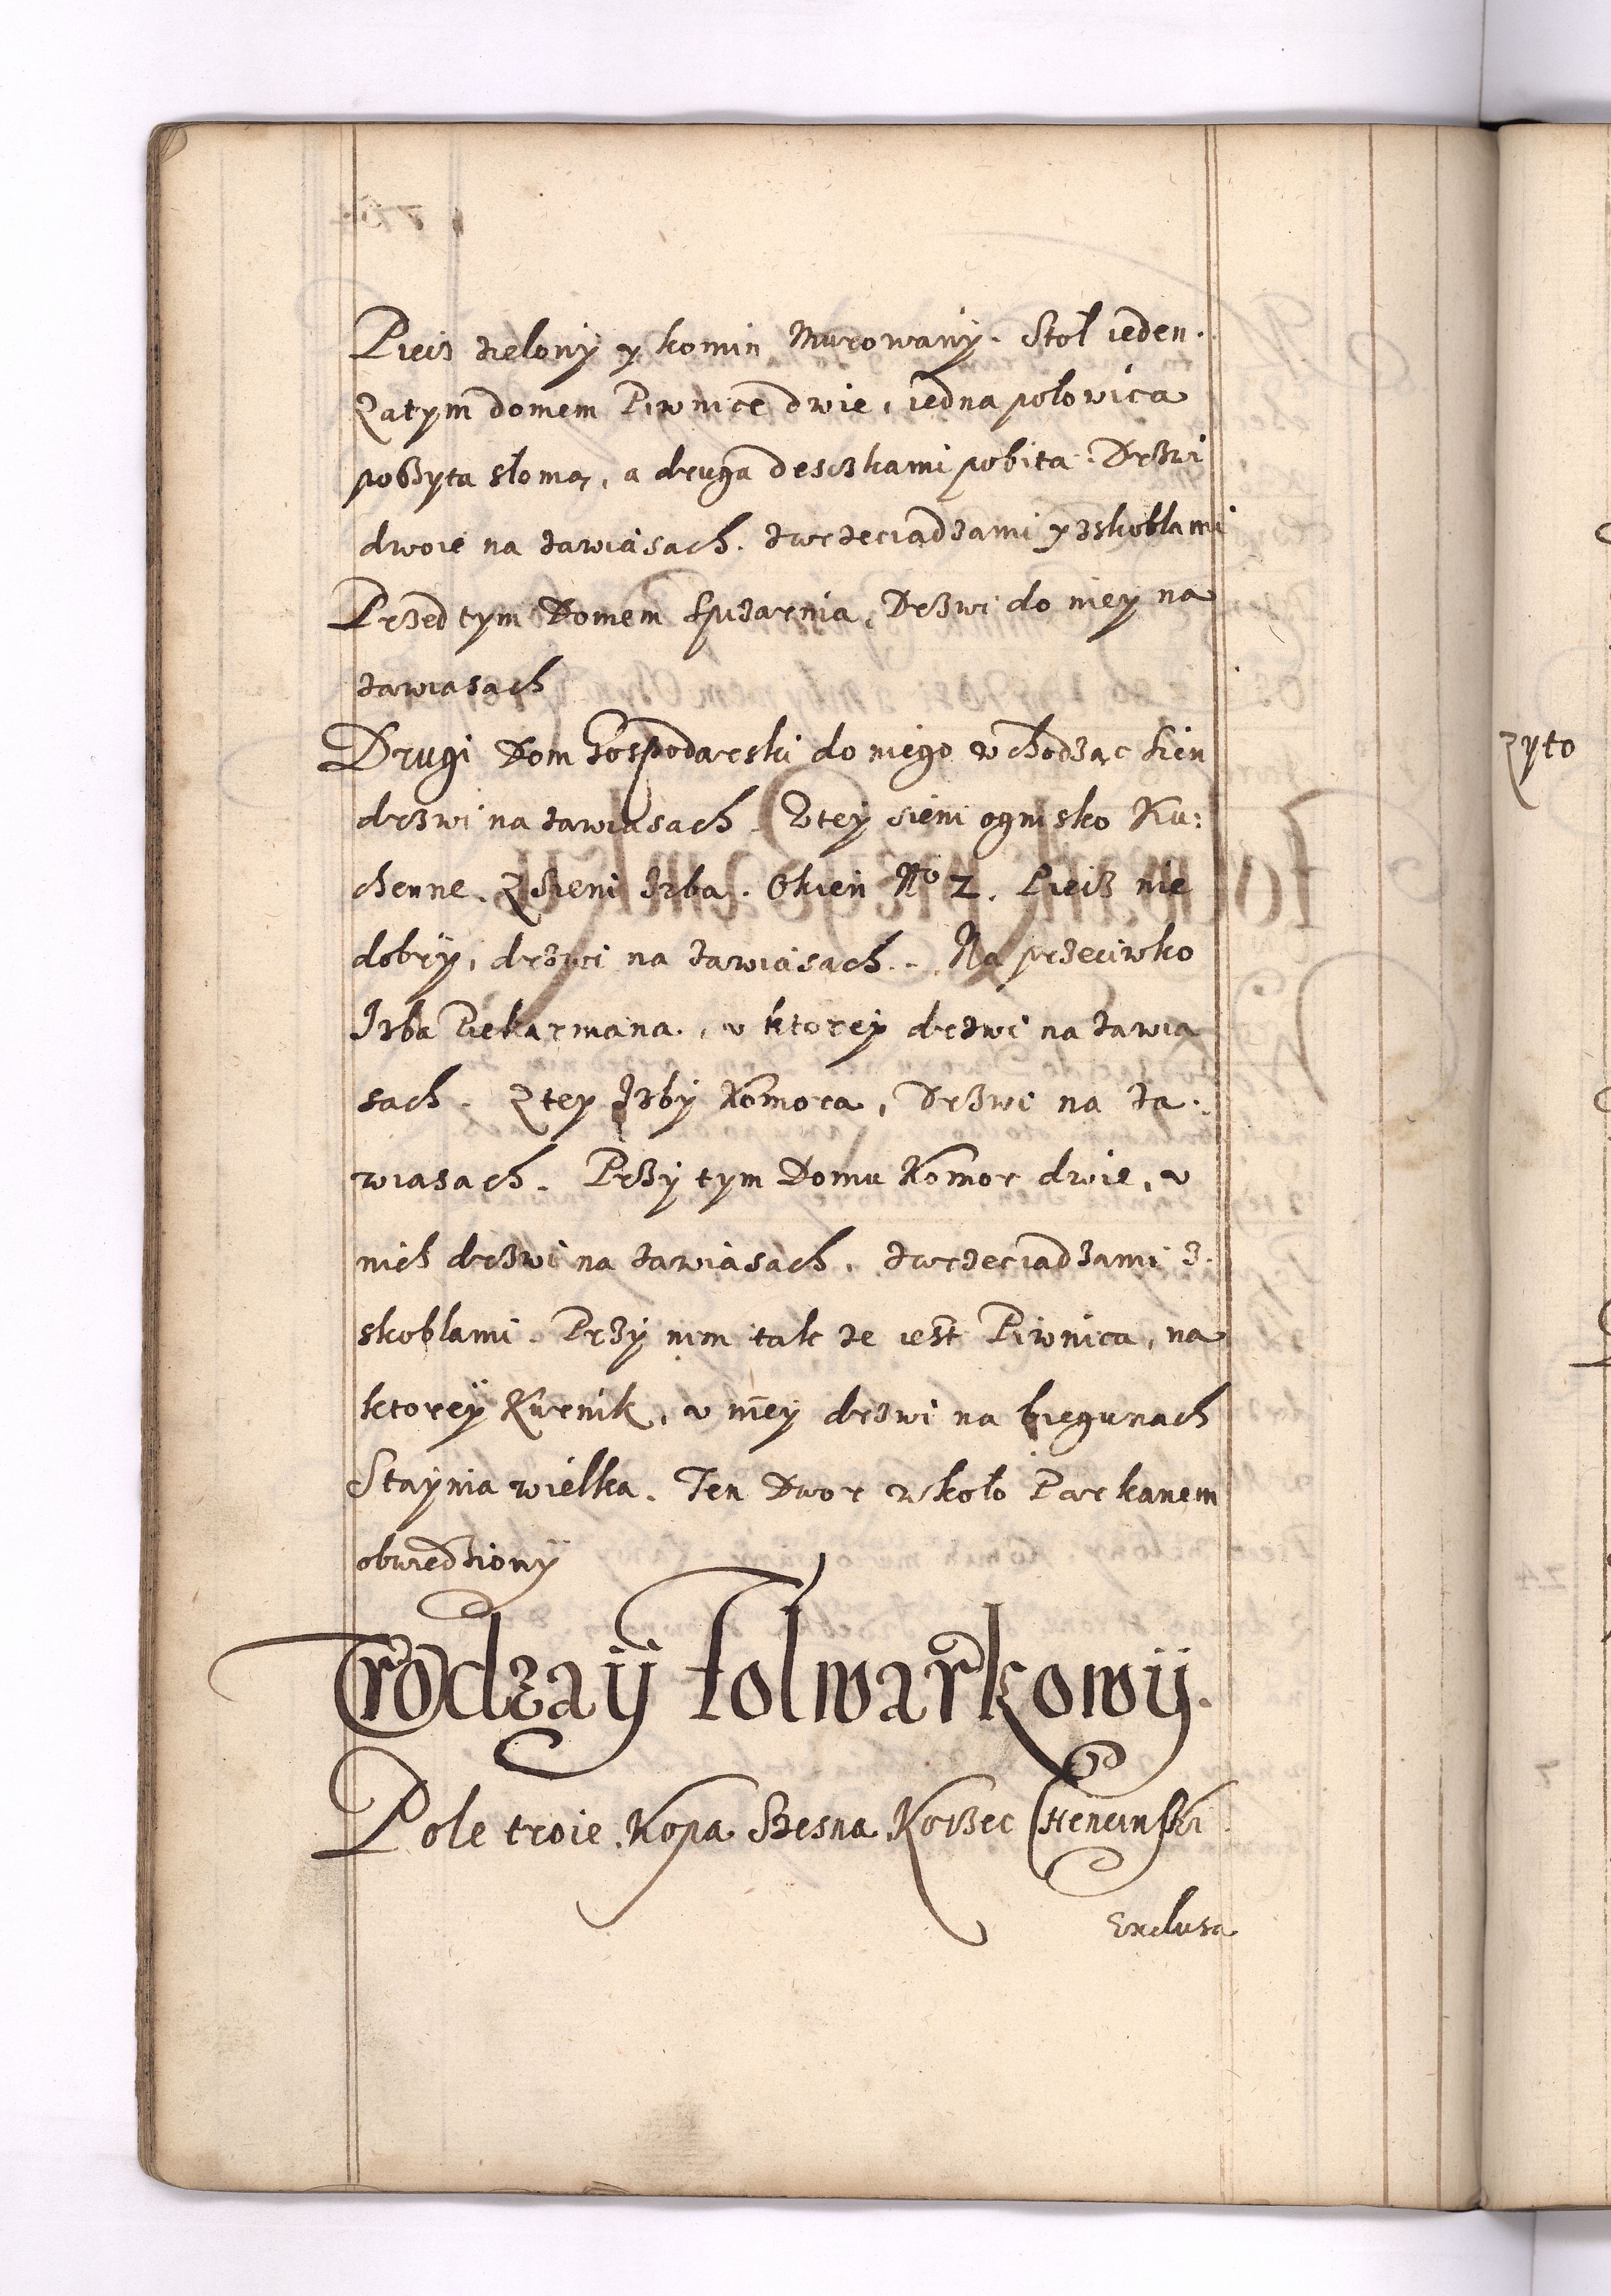 Piecz zielony y komin Murowany. Stoł ieden.
Zatym domem Piwnice dwie, iedna połowica
poszyta słomą, a druga desczkami pobita. Drzwi
dwoie na zawiasach. zwrzeciadzami y zskoblami
Przed tym Domem spizarnia, Drzwi do niey na
zawiasach
Drugi Dom Gospodarski do niego wchodząc sien
drzwi na zawiasach. Wtey sieni ognisko Ku:
chenne. Zsieni Izba. Okien No 2. Piecz nie
dobry, drzwi na zawiasach. Na przeciwko
Izba Piekarniana, v ktorey drzwi na zawia
sach. Ztey Izby Komora, Drzwi na za:
wiasach. Przy tym Domu Komor dwie, v
nich drzwi na zawiasach. zwrzeciadzami z.
skoblami. Przy nim tak ze iest Piwnica, na
ktorey Kurnik, v niey drzwi na biegunach
Staynia wielka. Ten Dwor wkoło Parkanem
obwiedziony
Vrodzaÿ folwarkowÿ.
Pole troie. Kopa Szesna Korzec Chencinski
Exclusa
zyto